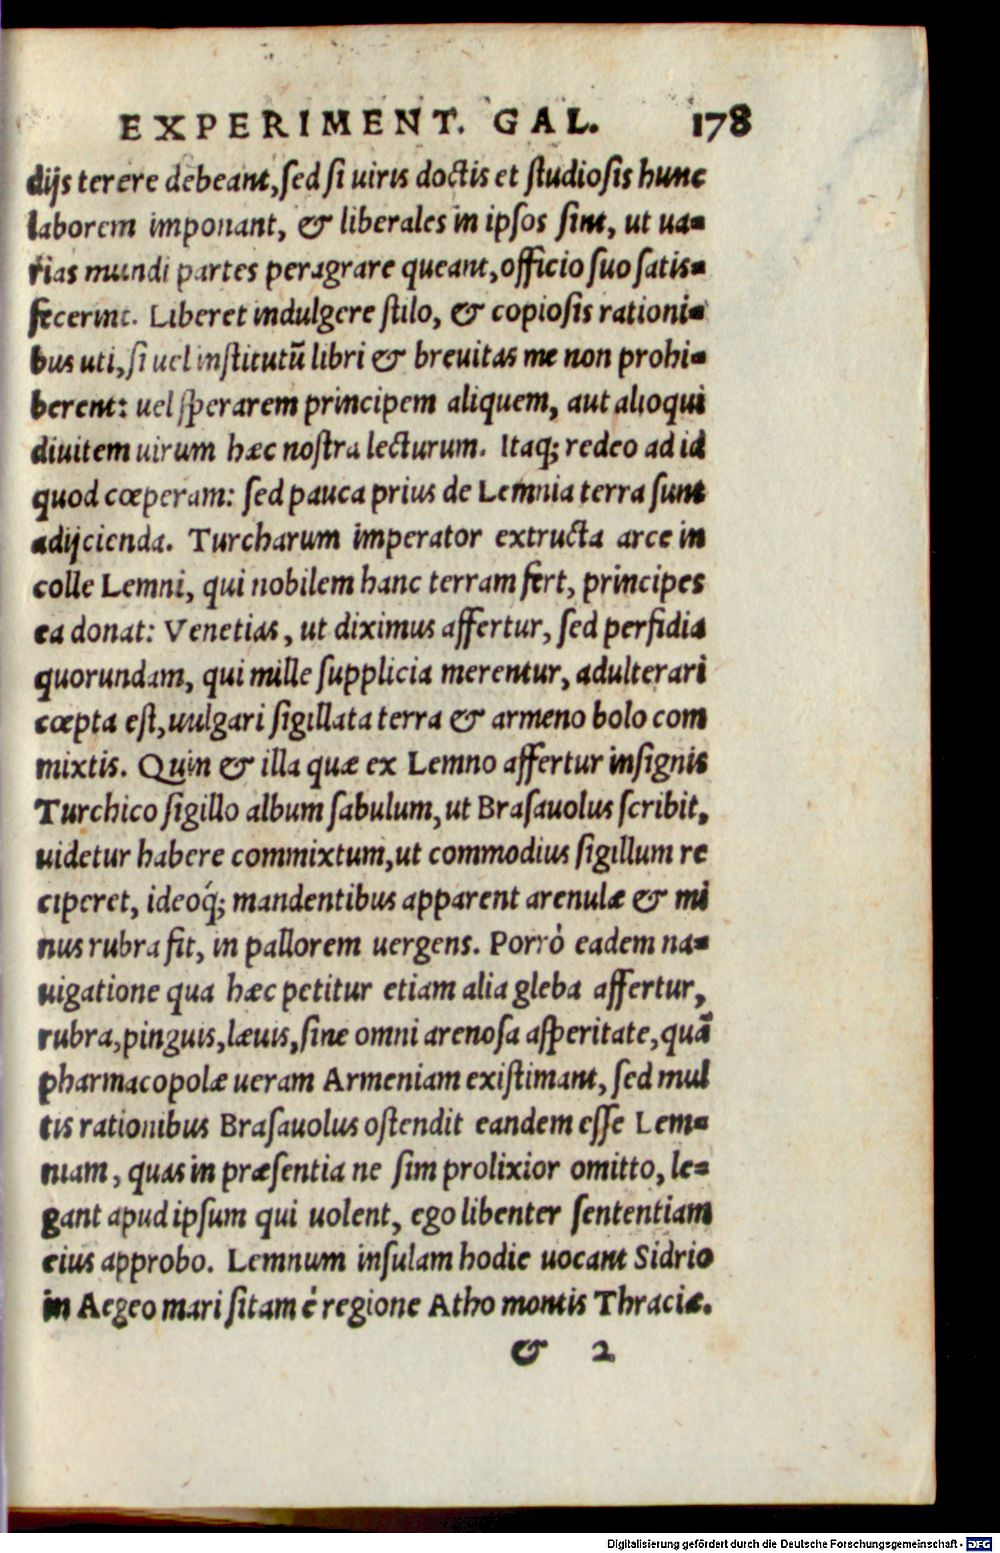 EXPERIMENT. GAL. 178
dijs terere debeant, ſed ſi uiris doctis et ſtudioſis hunc
laborem imponant, & liberales in ipſos ſint, ut ua-
rias mundi partes peragrare queant, officio ſuo ſatis-
fecerint. Liberet indulgere ſtilo, & copioſis rationi-
bus uti, ſi uel inſtitutū libri & breuitas me non prohi-
berent: uel ſperarem principem aliquem, aut alioqui
diuitem uirum hæc noſtra lecturum. Itaq; redeo ad id
quod cœperam: ſed pauca prius de Lemnia terra ſunt
adijcienda. Turcharum imperator extructa arce in
colle Lemni, qui nobilem hanc terram fert, principes
ea donat: Venetias, ut diximus affertur, ſed perfidia
quorundam, qui mille ſupplicia merentur, adulterari
cœpta eſt, uulgari ſigillata terra & armeno bolo com
mixtis. Quin & illa quæ ex Lemno affertur inſignis
Turchico ſigillo album ſabulum, ut Braſauolus ſcribit,
uidetur habere commixtum, ut commodius ſigillum re
ciperet, ideoq́; mandentibus apparent arenulæ & mi
nus rubra fit, in pallorem uergens. Porrò eadem na-
uigatione qua hæc petitur etiam alia gleba affertur,
rubra, pinguis, læuis, ſine omni arenoſa aſperitate, quā
pharmacopolæ ueram Armeniam exiſtimant, ſed mul
tis rationibus Braſauolus oſtendit eandem eſſe Lem-
niam, quas in præſentia ne ſim prolixior omitto, le-
gant apud ipſum qui uolent, ego libenter ſententiam
eius approbo. Lemnum inſulam hodie uocant Sidrio
in Aegeo mari ſitam è regione Atho montis Thraciæ.
& 2
Digitalisierung gefördert durch die Deutsche Forschungsgemeinschaft - DFG